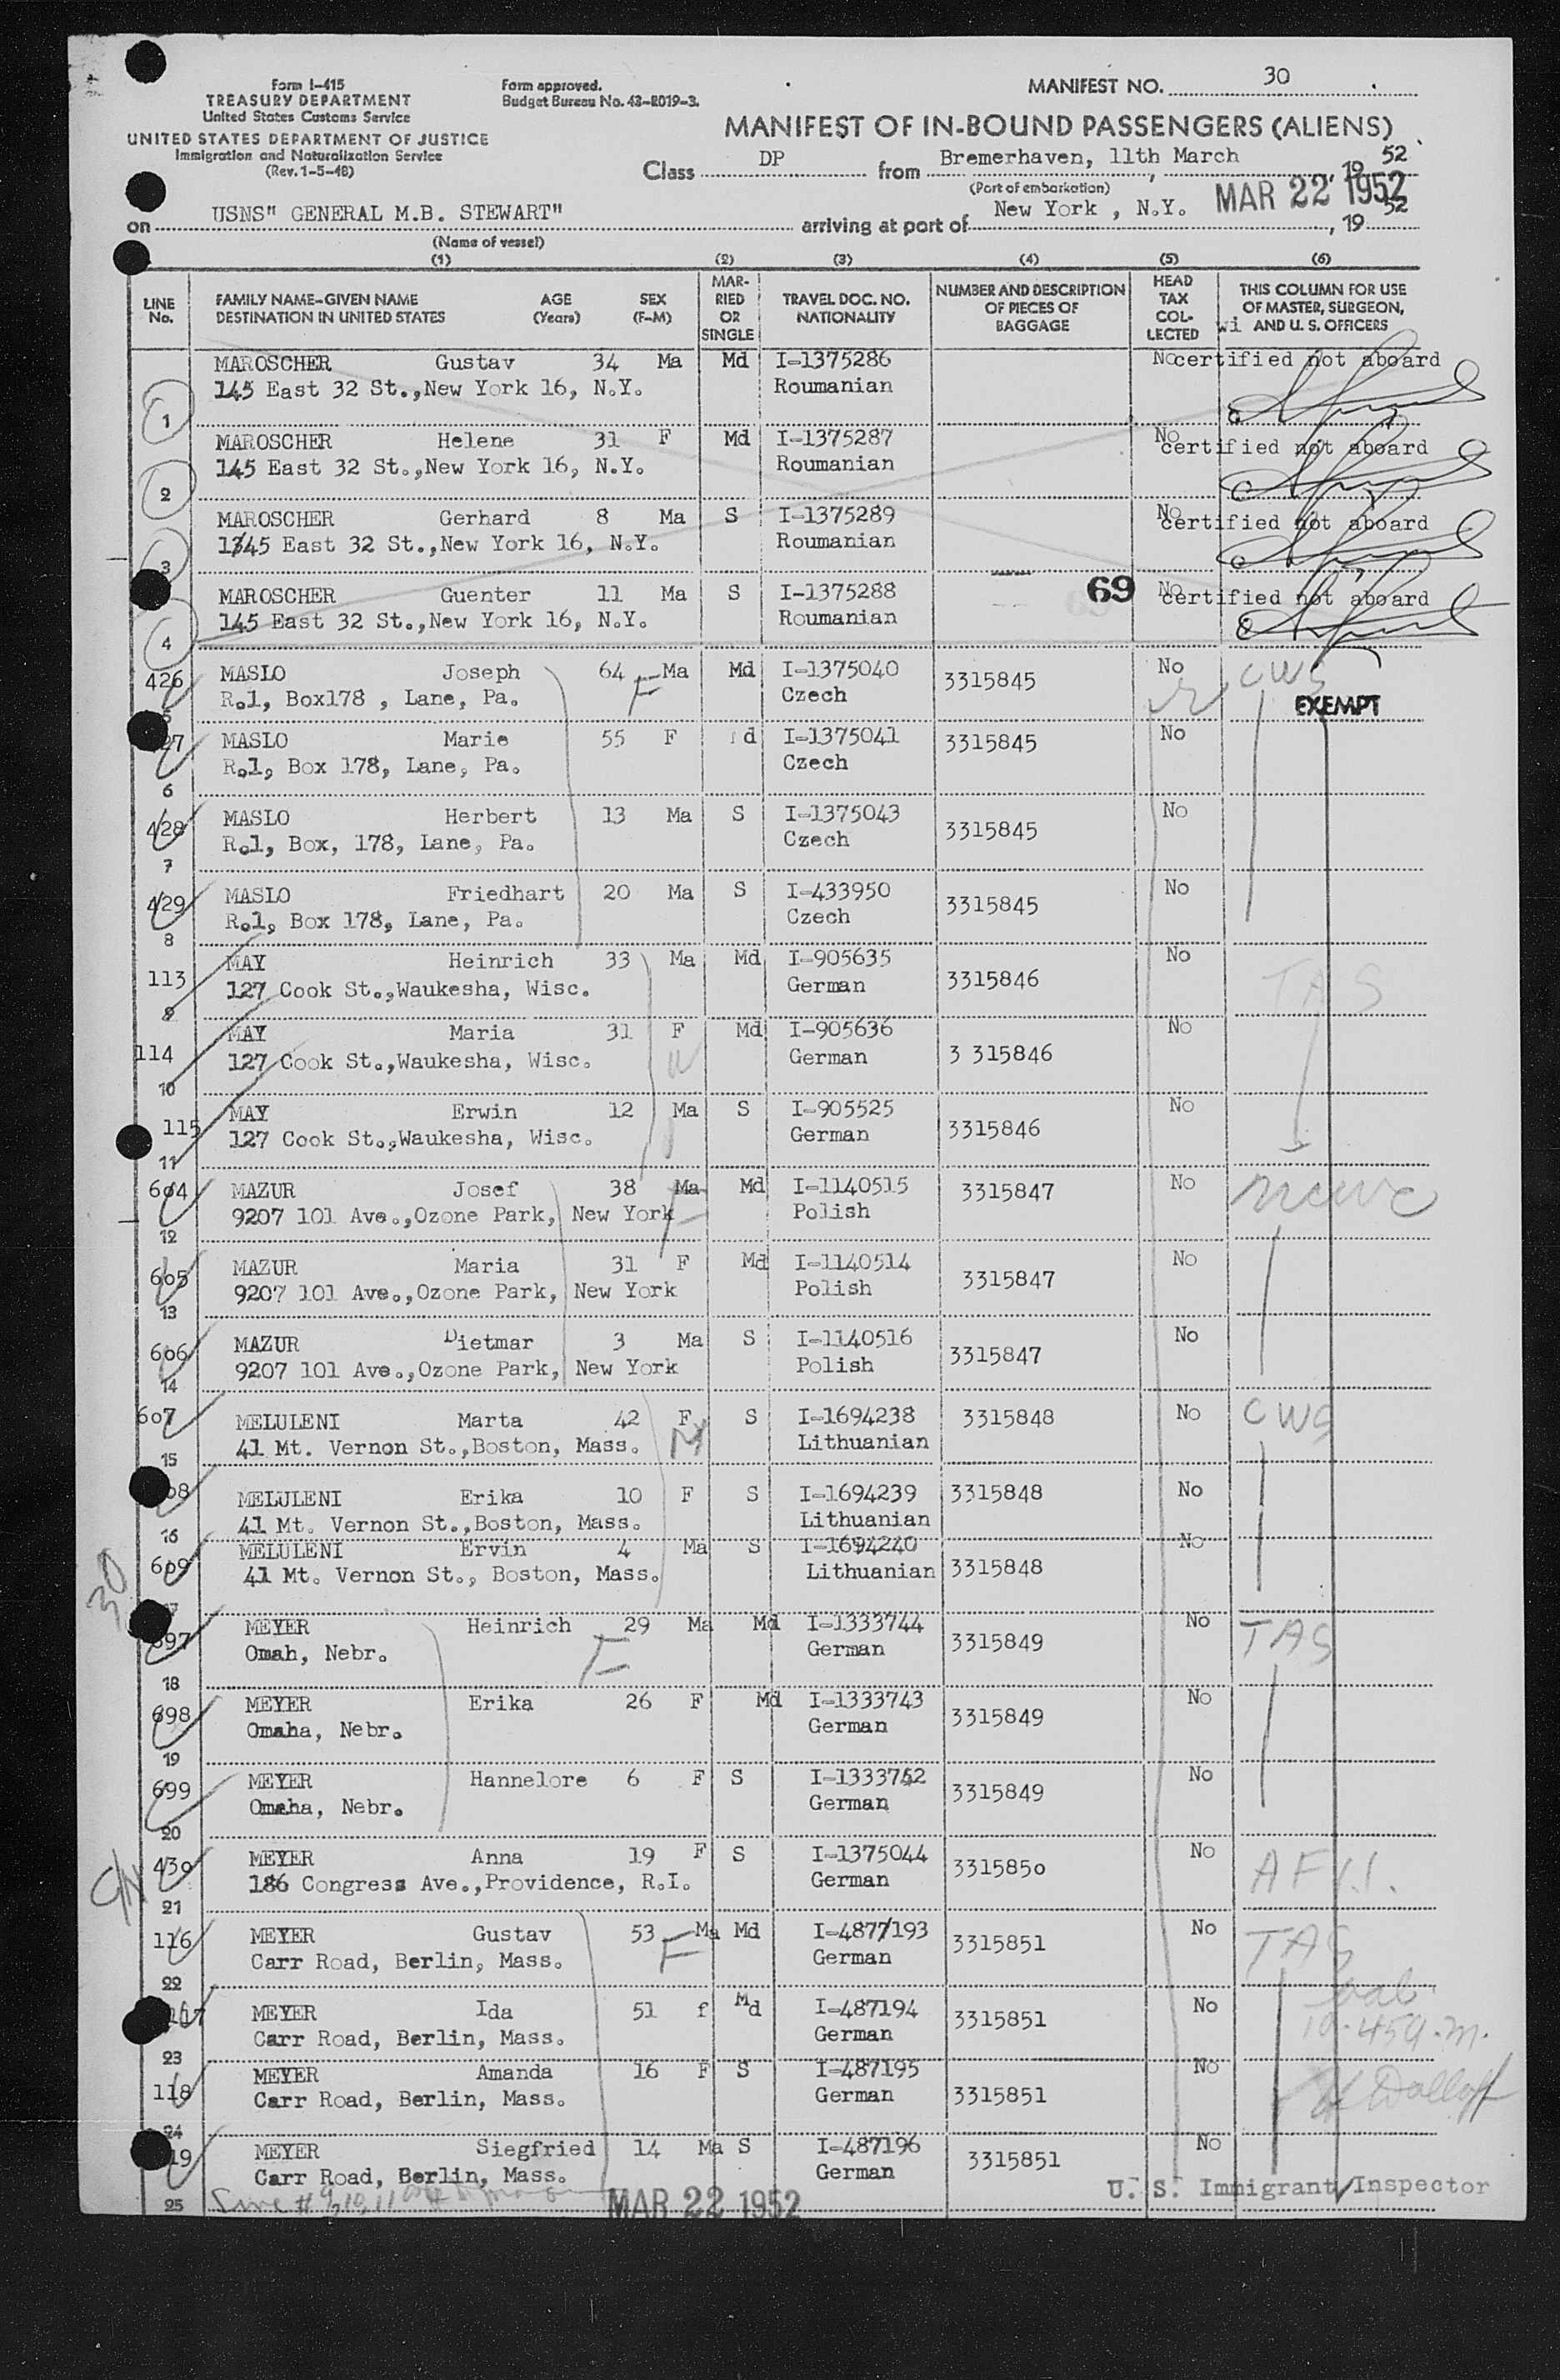 Form I-415
TREASURY DEPARTMENT
United States Customs Service
UNITED STATES DEPARTMENT OF JUSTICE
Immigration and Naturalization Service
(Rev. 1-5-48)
Form approved.
Budget Bureau No. 43-R019-3.
MANIFEST NO. 30
MANIFEST OF IN-BOUND PASSENGERS (ALIENS)
Class DP from Bremerhaven, 11th March, 19 52
(Port of embarkation)
MAR 22 1952
on USNS" GENERAL M.B. STEWART" arriving at port of New York , N.Y. , 19 52
(Name of vessel)
(1) (2) (3) (4) (5) (6)
LINE No. FAMILY NAME-GIVEN NAME DESTINATION IN UNITED STATES AGE (Years) SEX (F-M) MAR-RIED OR SINGLE TRAVEL DOC. NO. NATIONALITY NUMBER AND DESCRIPTION OF PIECES OF BAGGAGE HEAD TAX COL-LECTED THIS COLUMN FOR USE OF MASTER, SURGEON, AND U. S. OFFICERS
wi
MAROSCHER Gustav 34 Ma Md I-1375286 No certified not aboard
145 East 32 St.,New York 16, N.Y. Roumanian
1
MAROSCHER Helene 31 F Md I-1375287 No certified not aboard
145 East 32 St.,New York 16, N.Y. Roumanian
2
MAROSCHER Gerhard 8 Ma S I-1375289 No certified not aboard
1345 East 32 St.,New York 16, N.Y. Roumanian
3
MAROSCHER Guenter 11 Ma S I-1375288 69 No certified not aboard
145 East 32 St.,New York 16, N.Y. Roumanian
4
426 MASLO Joseph 64 F Ma Md I-1375040 3315845 No CWS
R.1, Box178 , Lane, Pa. Czech EXEMPT
5
27 MASLO Marie 55 F d I-1375041 3315845 No
R.1, Box 178, Lane, Pa. Czech
6
428 MASLO Herbert 13 Ma S I-1375043 3315845 No
R.1, Box, 178, Lane, Pa. Czech
7
429 MASLO Friedhart 20 Ma S I-433950 3315845 No
R.1, Box 178, Lane, Pa. Czech
8
113 MAY Heinrich 33 Ma Md I-905635 3315846 No TAS
127 Cook St.,Waukesha, Wisc. German
9
114 MAY Maria 31 F Md I-905636 3 315846 No
127 Cook St.,Waukesha, Wisc. German
10
115 MAY Erwin 12 Ma S I-905525 3315846 No
127 Cook St.,Waukesha, Wisc. German
11
604 MAZUR Josef 38 Ma Md I-1140515 3315847 No ncwc
9207 101 Ave.,Ozone Park, New York Polish
12
605 MAZUR Maria 31 F Md I-1140514 3315847 No
9207 101 Ave.,Ozone Park, New York Polish
13
606 MAZUR Dietmar 3 Ma S I-1140516 3315847 No
9207 101 Ave.,Ozone Park, New York Polish
14
607 MELULENI Marta 42 F S I-1694238 3315848 No CWS
41 Mt. Vernon St.,Boston, Mass. Lithuanian
15
08 MELULENI Erika 10 F S I-1694239 3315848 No
41 Mt. Vernon St.,Boston, Mass. Lithuanian
16
609 MELULENI Ervin 4 Ma S I-1694240 3315848 No
41 Mt. Vernon St., Boston, Mass. Lithuanian
30
17
697 MEYER Heinrich 29 Ma Md I-1333744 3315849 No TAS
Omah, Nebr. F German
18
698 MEYER Erika 26 F Md I-1333743 3315849 No
Omaha, Nebr. German
19
699 MEYER Hannelore 6 F S I-1333742 3315849 No
Omaha, Nebr. German
20
430 MEYER Anna 19 F S I-1375044 3315850 No
186 Congress Ave.,Providence, R.I. German
21
116 MEYER Gustav 53 F Ma Md I-4877193 3315851 No TAS
Carr Road, Berlin, Mass. German
22
117 MEYER Ida 51 f Md I-487194 3315851 No
Carr Road, Berlin, Mass. German
23
118 MEYER Amanda 16 F S I-487195 3315851 No
Carr Road, Berlin, Mass. German
24
19 MEYER Siegfried 14 Ma S I-487196 3315851 No
Carr Road, Berlin, Mass. German
U. S. Immigrant Inspector
25 Line # 9, 10, 11
MAR 22 1952